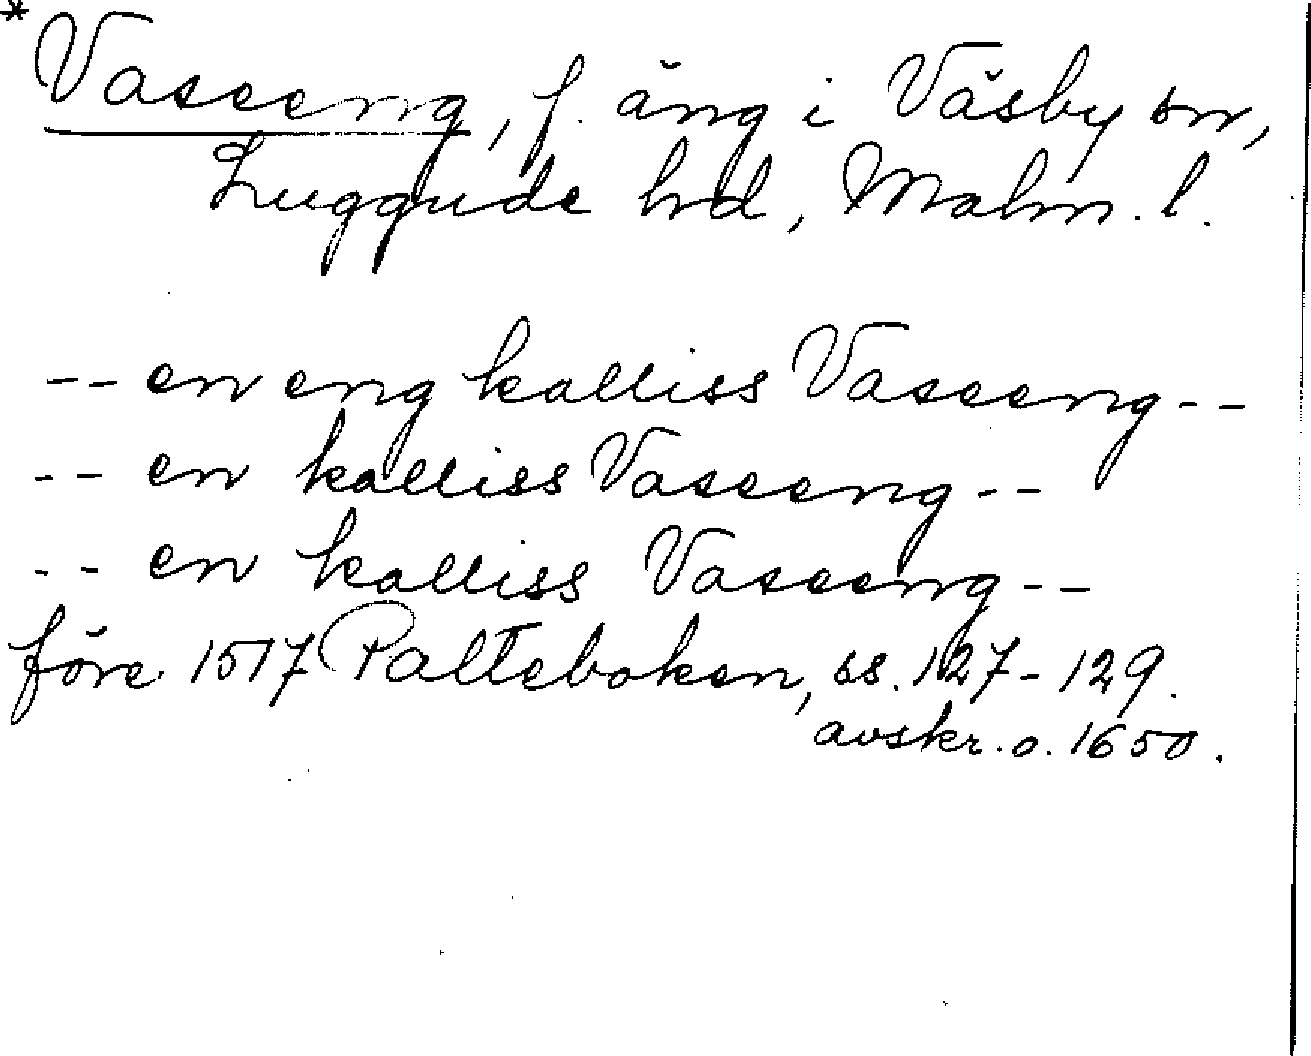 *Vaseeng, f. äng i Väsby sn,
Luggude hd, Malm. l.
-- en eng kalliss Vaseeng --
-- en kalliss Vaseeng --
-- en kalliss Vaseeng --
före 1517 Palteboken, ss. 127-129.
avskr. o. 1650.